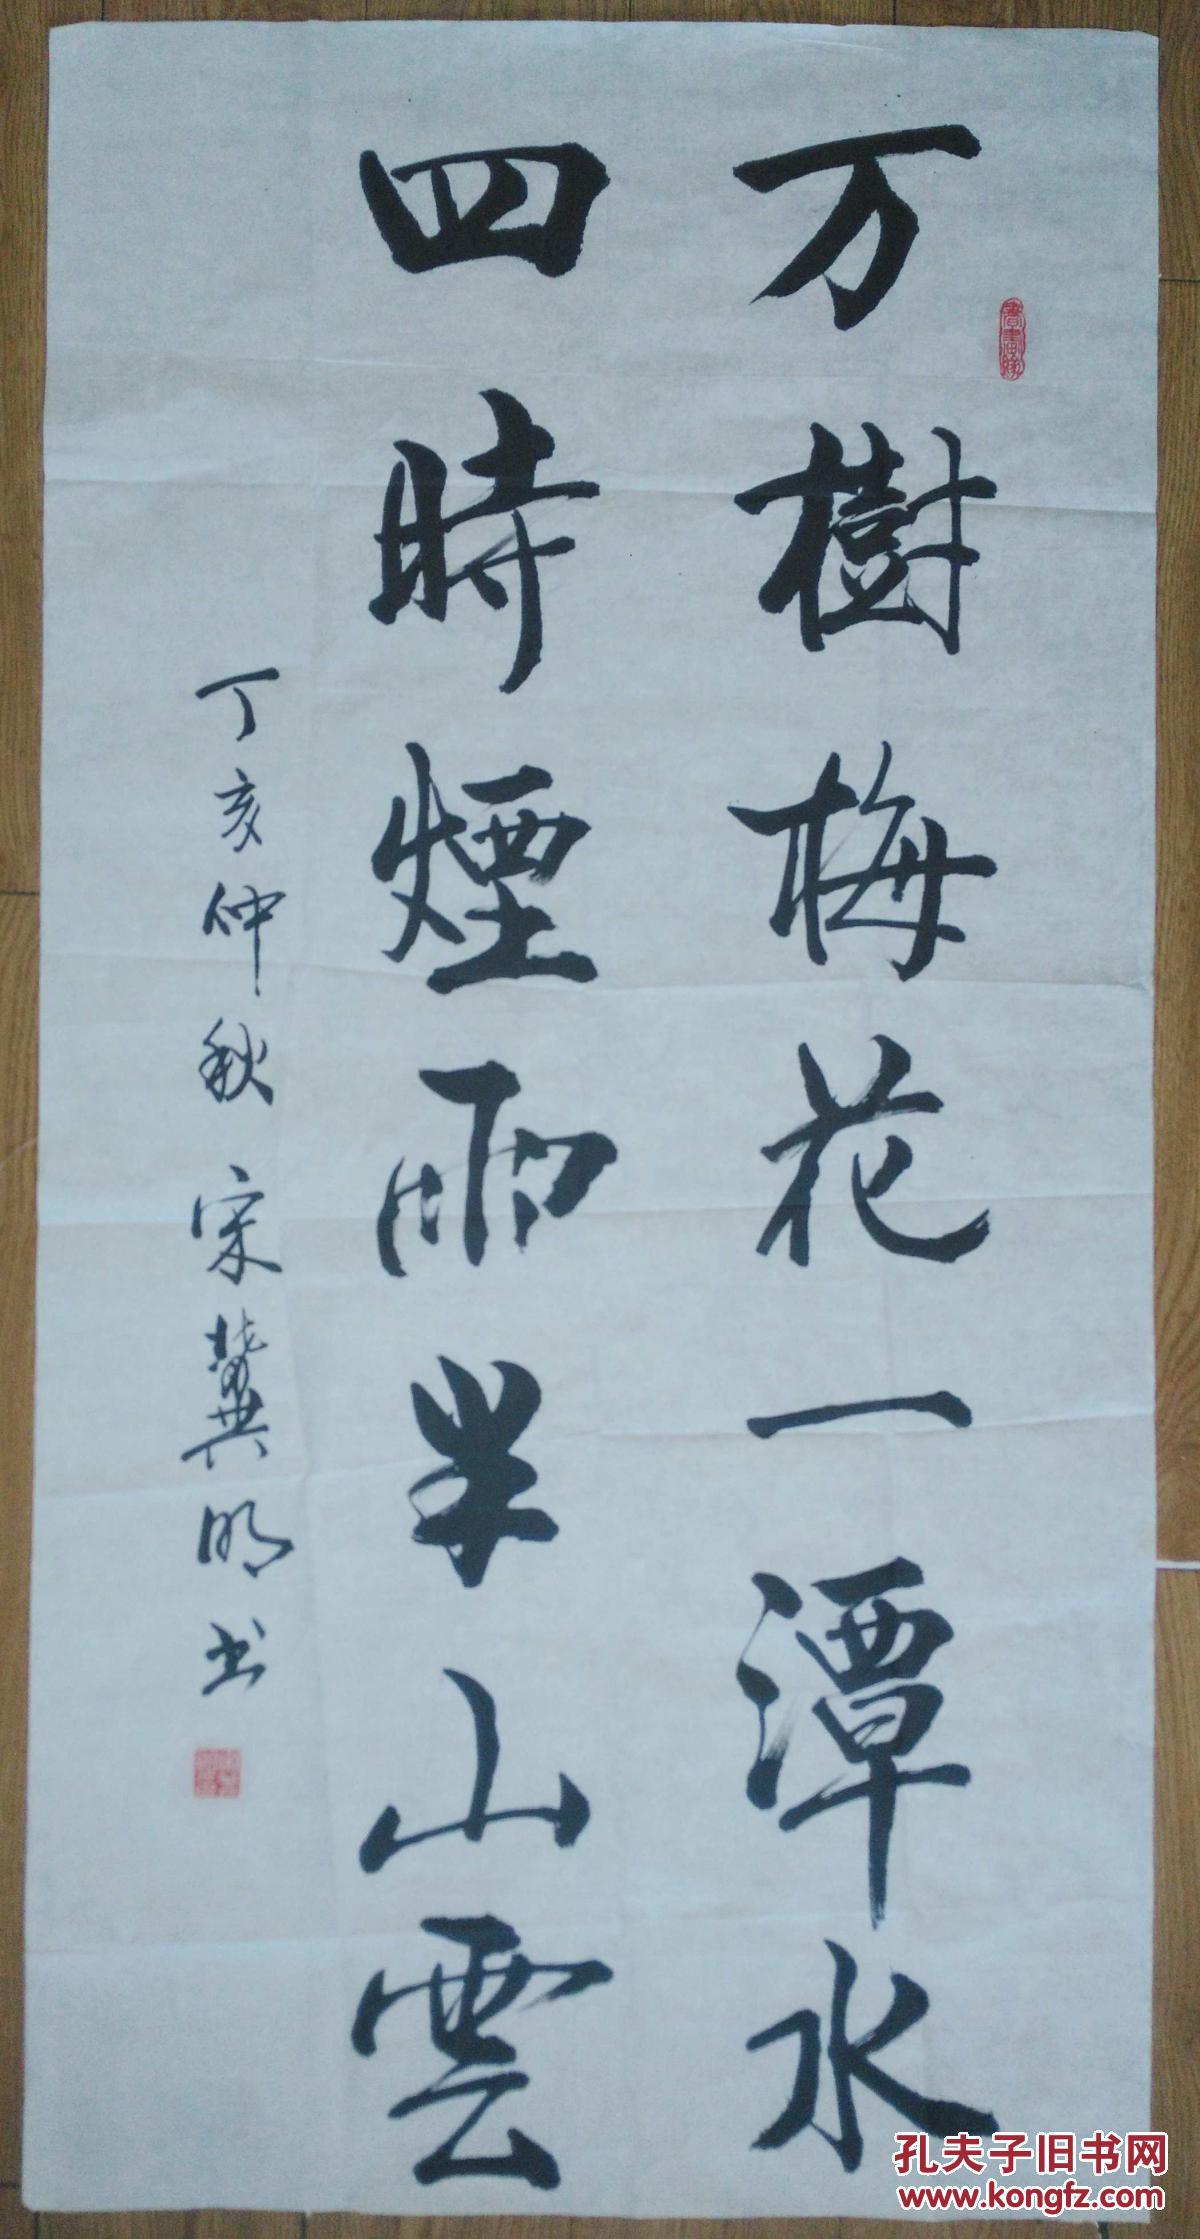 万樹梅花一潭水
四時煙雨半山雲
丁亥仲秋宋冀明书
孔夫子旧书网
www.kongfz.com